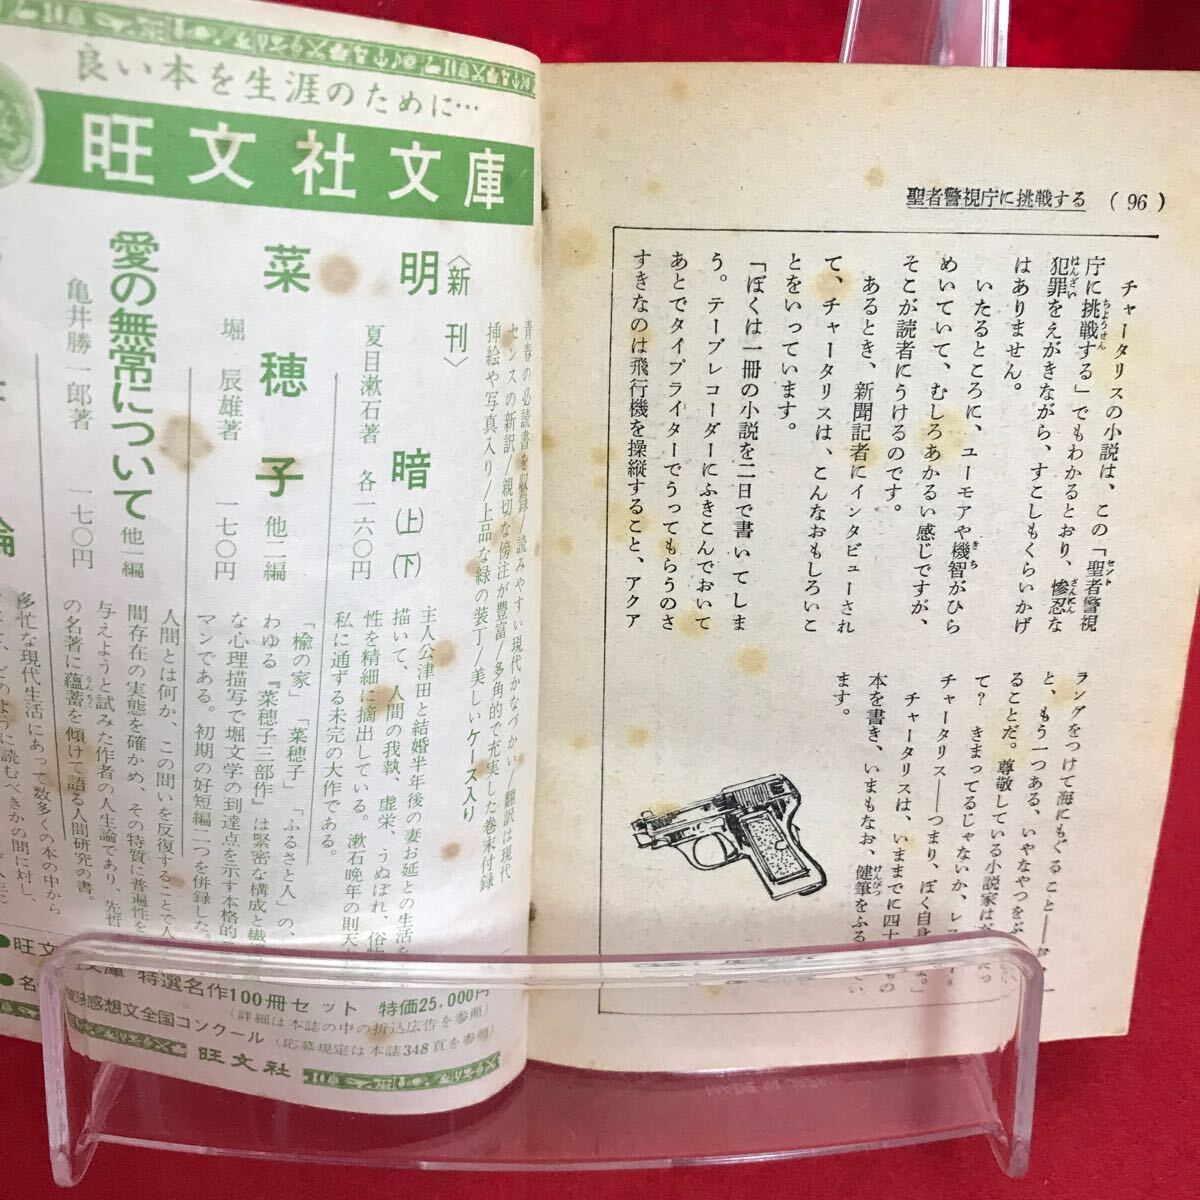 聖者警視庁に挑戦する (96)
チャータリスの小説は、この「聖者警視
庁に挑戦する」でもわかるとおり、惨忍な
犯罪をえがきながら、すこしもくらいかげ
はありません。
いたるところに、ユーモアや機智がひら
めいていて、むしろあかるい感じですが、
そこが読者にうけるのです。
あるとき、新聞記者にインタビューされ
て、チャータリスは、こんなおもしろいこ
とをいっています。
「ぼくは一冊の小説を二日で書いてしま
う。テープレコーダーにふきこんでおいて
あとでタイプライターでうってもらうのさ
すきなのは飛行機を操縦すること、アクア
ラングをつけて海にもぐること――
と、もう一つある、いやなやつをぶ
ることだ。尊敬している小説家は
て? きまってるじゃないか、レス
チャータリス――つまり、ぼく自身
チャータリスは、いままでに四十
本を書き、いまもなお、健筆をふる
ます。
良い本を生涯のために…
旺文社文庫
青春の必読書を収録/読みやすい現代かなづかい 翻訳は現代
センスの新訳/親切な傍注が豊富/多角的で充実した巻末付録
挿絵や写真入り/上品な緑の装丁/美しいケース入り
〈新刊〉
明暗(上)(下)
夏目漱石著 各一六〇円
主人公津田と結婚半年後の妻お延との生活を
描いて、人間の我執、虚栄、うぬぼれ、俗物
性を精細に摘出している。漱石晩年の則天
私に通ずる未完の大作である。
菜穂子 他二編
堀 辰雄著 一七〇円
「楡の家」「菜穂子」「ふるさと人」の、
わゆる『菜穂子三部作』は緊密な構成と繊
な心理描写で堀文学の到達点を示す本格的
マンである。初期の好短編二つを併録した。
愛の無常について 他一編
亀井勝一郎著 一七〇円
人間とは何か、この問いを反復することで人
間存在の実態を確かめ、その特質に普遍性を
与えようと試みた作者の人生論であり、先哲
の名著に蘊蓄を傾けて語る人間研究の書。
論
多忙な現代生活にあって数多くの本の中から
のように読むべきかの問に対し、
●旺文
文庫 特選名作100冊セット 特価25,000円
(詳細は本誌の中の折込広告を参照)
感想文全国コンクール (応募規定は本誌348頁を参照)
旺文社